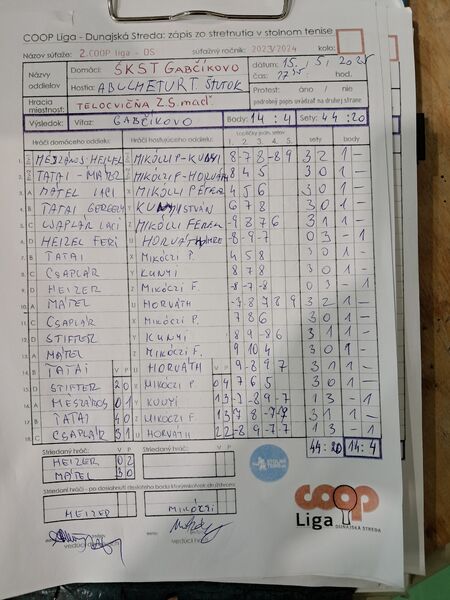 COOP Liga - Dunajská Streda: zápis zo stretnutia v stolnom tenise
Názov súťaže: 2.COOP liga - DS súťažný ročník: 2023/2024 kolo:
Názvy oddielov
Domáci: ŠKST GABČÍKOVO
dátum: 15./5/2025
Hostia:
čas: hod.
Hracia miestnosť: TELOCVIČŇA Z.Š. maď.
Protest: áno - nie
podrobný popis uvádzať na druhej strane
Výsledok: Víťaz: GABČÍKOVO Body: 14 : 4 Sety: 44 : 20
Hráči domáceho oddielu: Hráči hosťujúceho oddielu: Lopticky jedn. setov 1. 2. 3. 4. 5. sety body
1. MÉSZÁROS-HEIZER MIKÓCZI P-KUNYI 8 -7 8 -8 9 3 2 1 -
2. TATAI - MÁTEL MIKÓCZI F-HORVÁTH 8 4 5 3 0 1 -
3. A MÁTEL LACI X MIKÓCZI PÉTER 4 5 6 3 0 1 -
4. B TATAI GERGELY Y KUNYI ISTVÁN 6 7 8 3 0 1 -
5. C CSAPLÁR LACI Z MIKÓCZI FERENC -9 8 7 6 3 1 1 -
6. D HEIZER FERI U HORVÁTH -8 -9 -7 0 3 - 1
7. B TATAI X MIKÓCZI P. 4 5 8 3 0 1 -
8. C CSAPLÁR Y KUNYI 8 7 8 3 0 1 -
9. D HEIZER Z MIKÓCZI F. -8 -9 -7 0 3 - 1
10. A MÁTEL U HORVÁTH -7 8 7 8 9 3 2 1 -
11. C CSAPLÁR X MIKÓCZI P. 7 8 6 3 0 1 -
12. D STIFTER Y KUNYI 8 9 -8 6 3 1 1 -
13. A MÁTEL Z MIKÓCZI F. 9 10 4 3 0 1 -
14. B TATAI V P U HORVÁTH V P 9 -8 9 7 3 1 1 -
15. D STIFTER 2 0 X MIKÓCZI P 0 4 7 6 5 3 0 1 -
16. A MÉSZÁROS 0 1 Y KUNYI 1 3 -7 -8 9 -7 1 3 - 1
17. B TATAI 4 0 Z MIKÓCZI F 1 3
18. C CSAPLÁR 3 1 U HORVÁTH 2 2 -8 9 -7 -7 1 3 - 1
Striedaný hráč: V P Striedaný hráč: V P 44 : 20 14 : 4
HEIZER 0 2
MÁTEL 3 0
STOLNÝ TENIS
Striedaní hráči - po dosiahnutí desiateho bodu ktorýmkoľvek družstvom
HEIZER MIKÓCZI
vedúci vedúci
coop
Liga DUNAJSKÁ STREDA